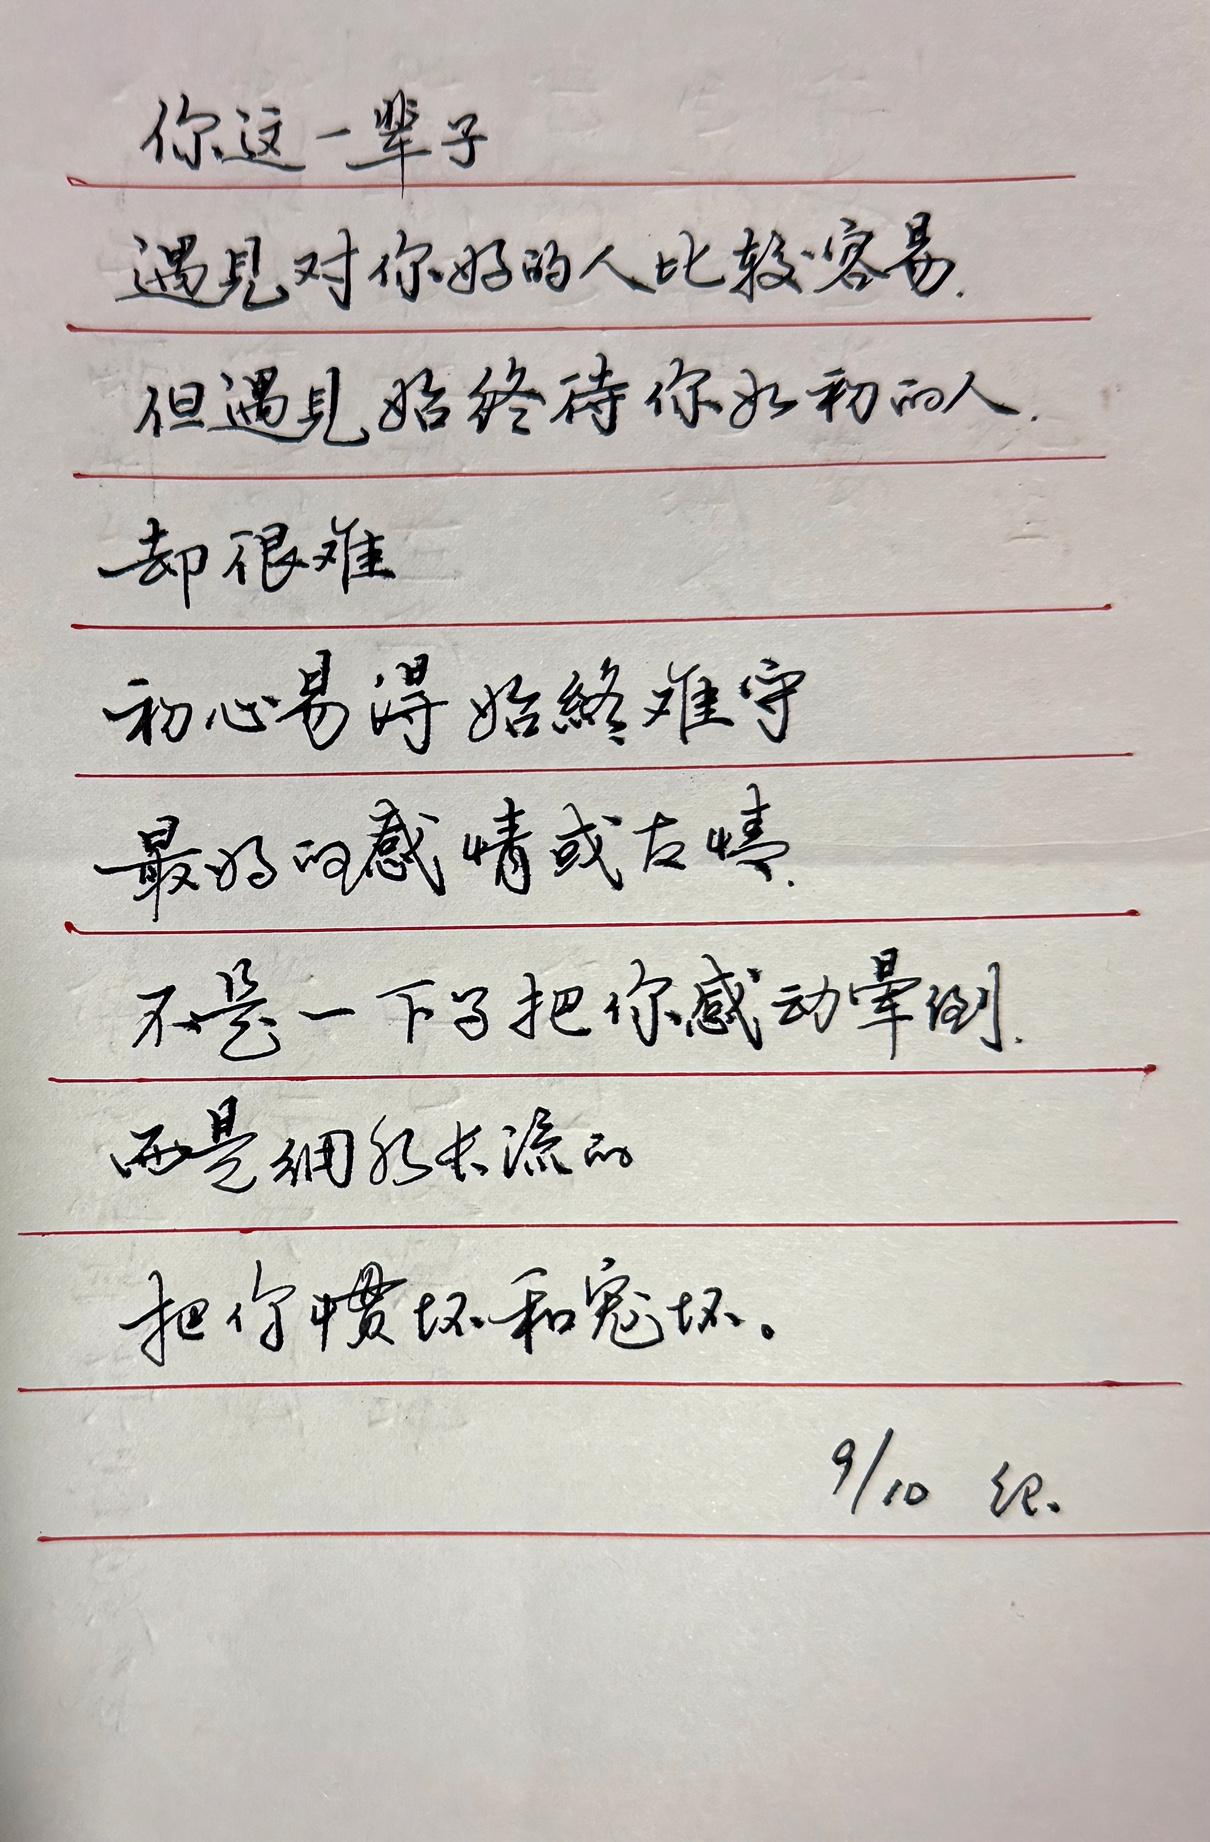 你这一辈子
遇见对你好的人比较容易.
但遇见始终待你如初的人.
却很难
初心易得始終难守
最好的感情或友情.
不是一下子把你感动晕倒.
而是细水长流的
把你惯坏和宠坏。
9/10